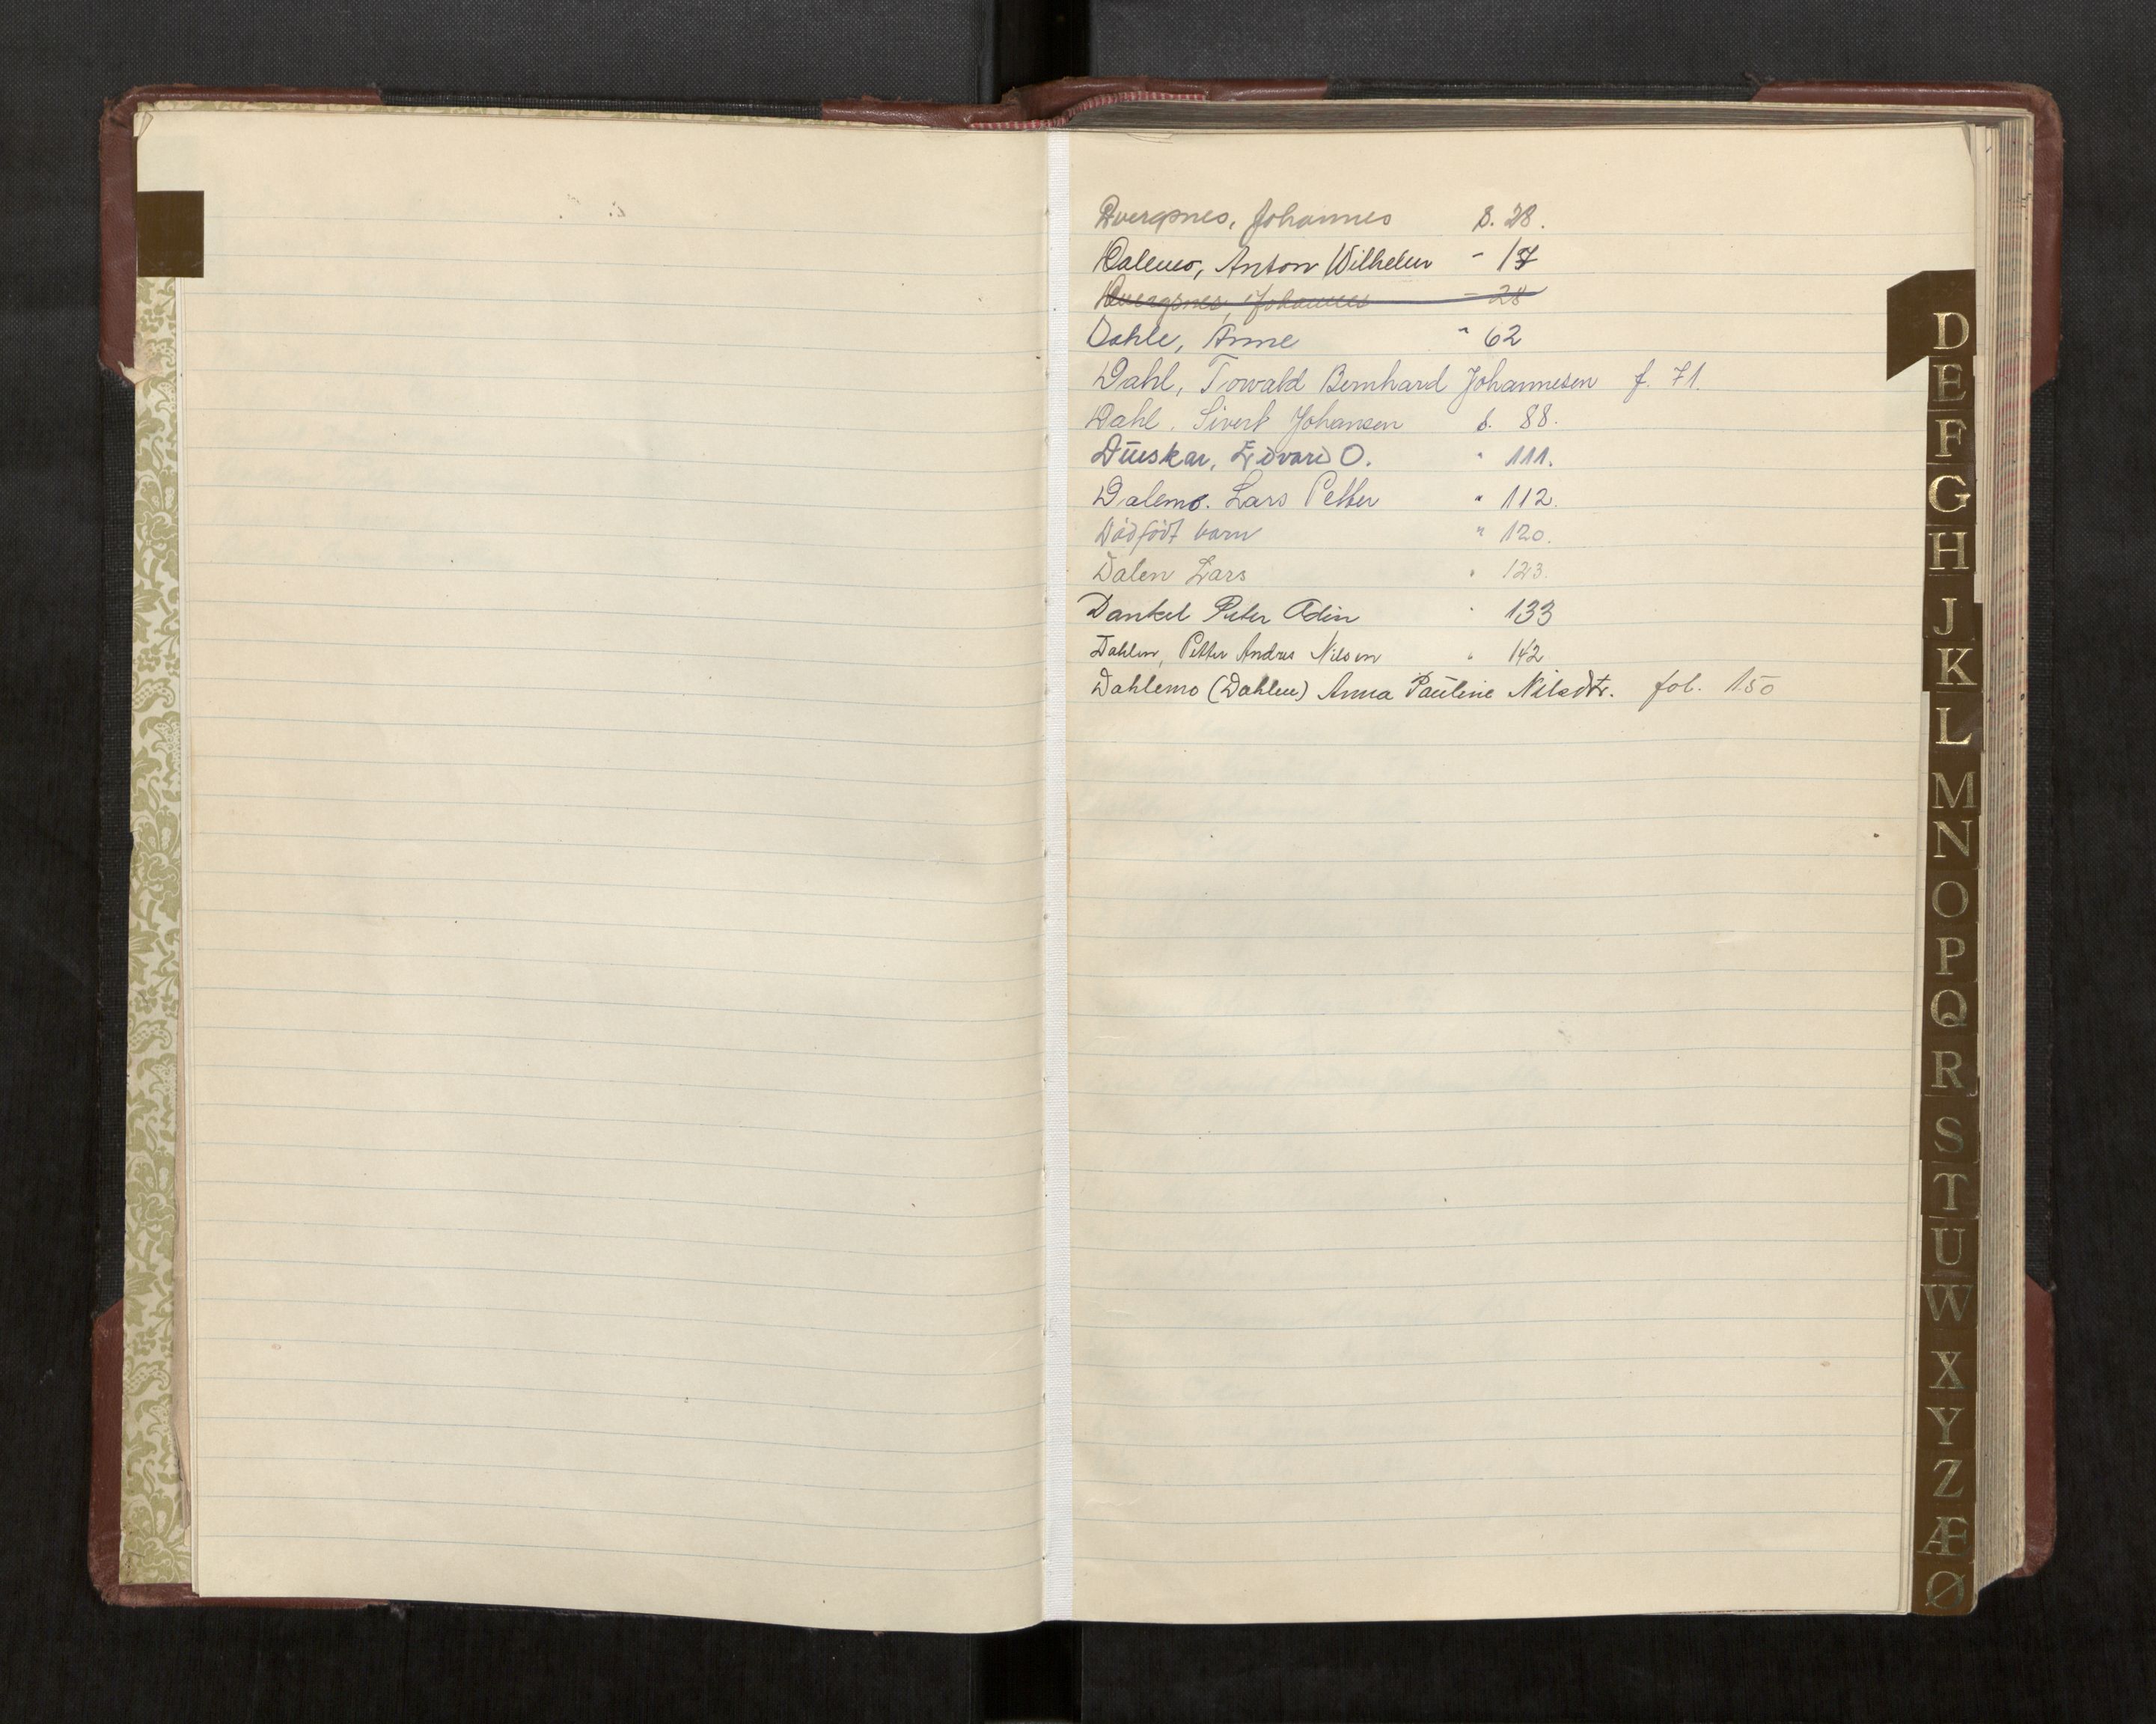 Dvergsnes, Johannes s. 28.
Dalemo, Anton Wilhelm - 17
Dvergsnes, Johannes - 28
Dahle, Anne " 62
Dahl, Torvald Bernhard Johannesen f. 71.
Dahl, Sivert Johansen s. 88.
Dueskar, Edvard O. " 111.
Dalemo. Lars Petter " 112.
Dødfødt barn " 120.
Dalen Lars " 123.
Dankel Peter Odin " 133
Dahlen, Petter Andres Nilsen " 142
Dahlemo (Dahlen) Anna Pauline Nilsdtr. fol. 150
D
E
F
G
H
J
K
L
M
N
O
P
Q
R
S
T
U
W
X
Y
Z
Æ
Ø